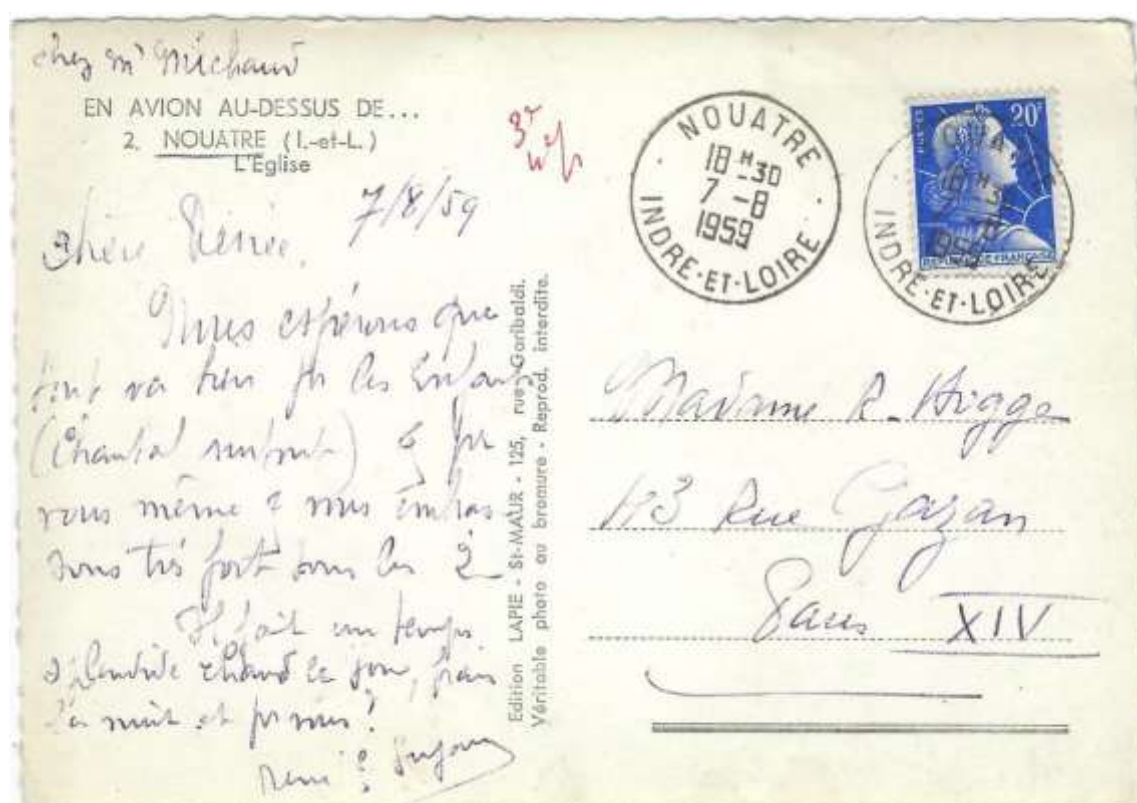 chez Mr Michaud
EN AVION AU-DESSUS DE...
2. NOUATRE (I.-et-L.)
L'Eglise
7/8/59
Chère
Nous espérons que
tout va bien pr les Enfants
(Chantal surtout) & pr
vous même & nous embras
sons très fort tous les 2
Il fait un temps
splendide chaud le jour, frais
la nuit et pr vous?
Edition LAPIE - St-MAUR - 125, rue Garibaldi.
Véritable photo au bromure - Reprod. interdite.
NOUATRE
18 H -30
7 -8
1959
INDRE-ET-LOIRE
20F
POSTES
REPUBLIQUE FRANÇAISE
18 H 30
1959
INDRE-ET-LOIRE
Madame R. Higge
Rue Gazan
Paris XIV